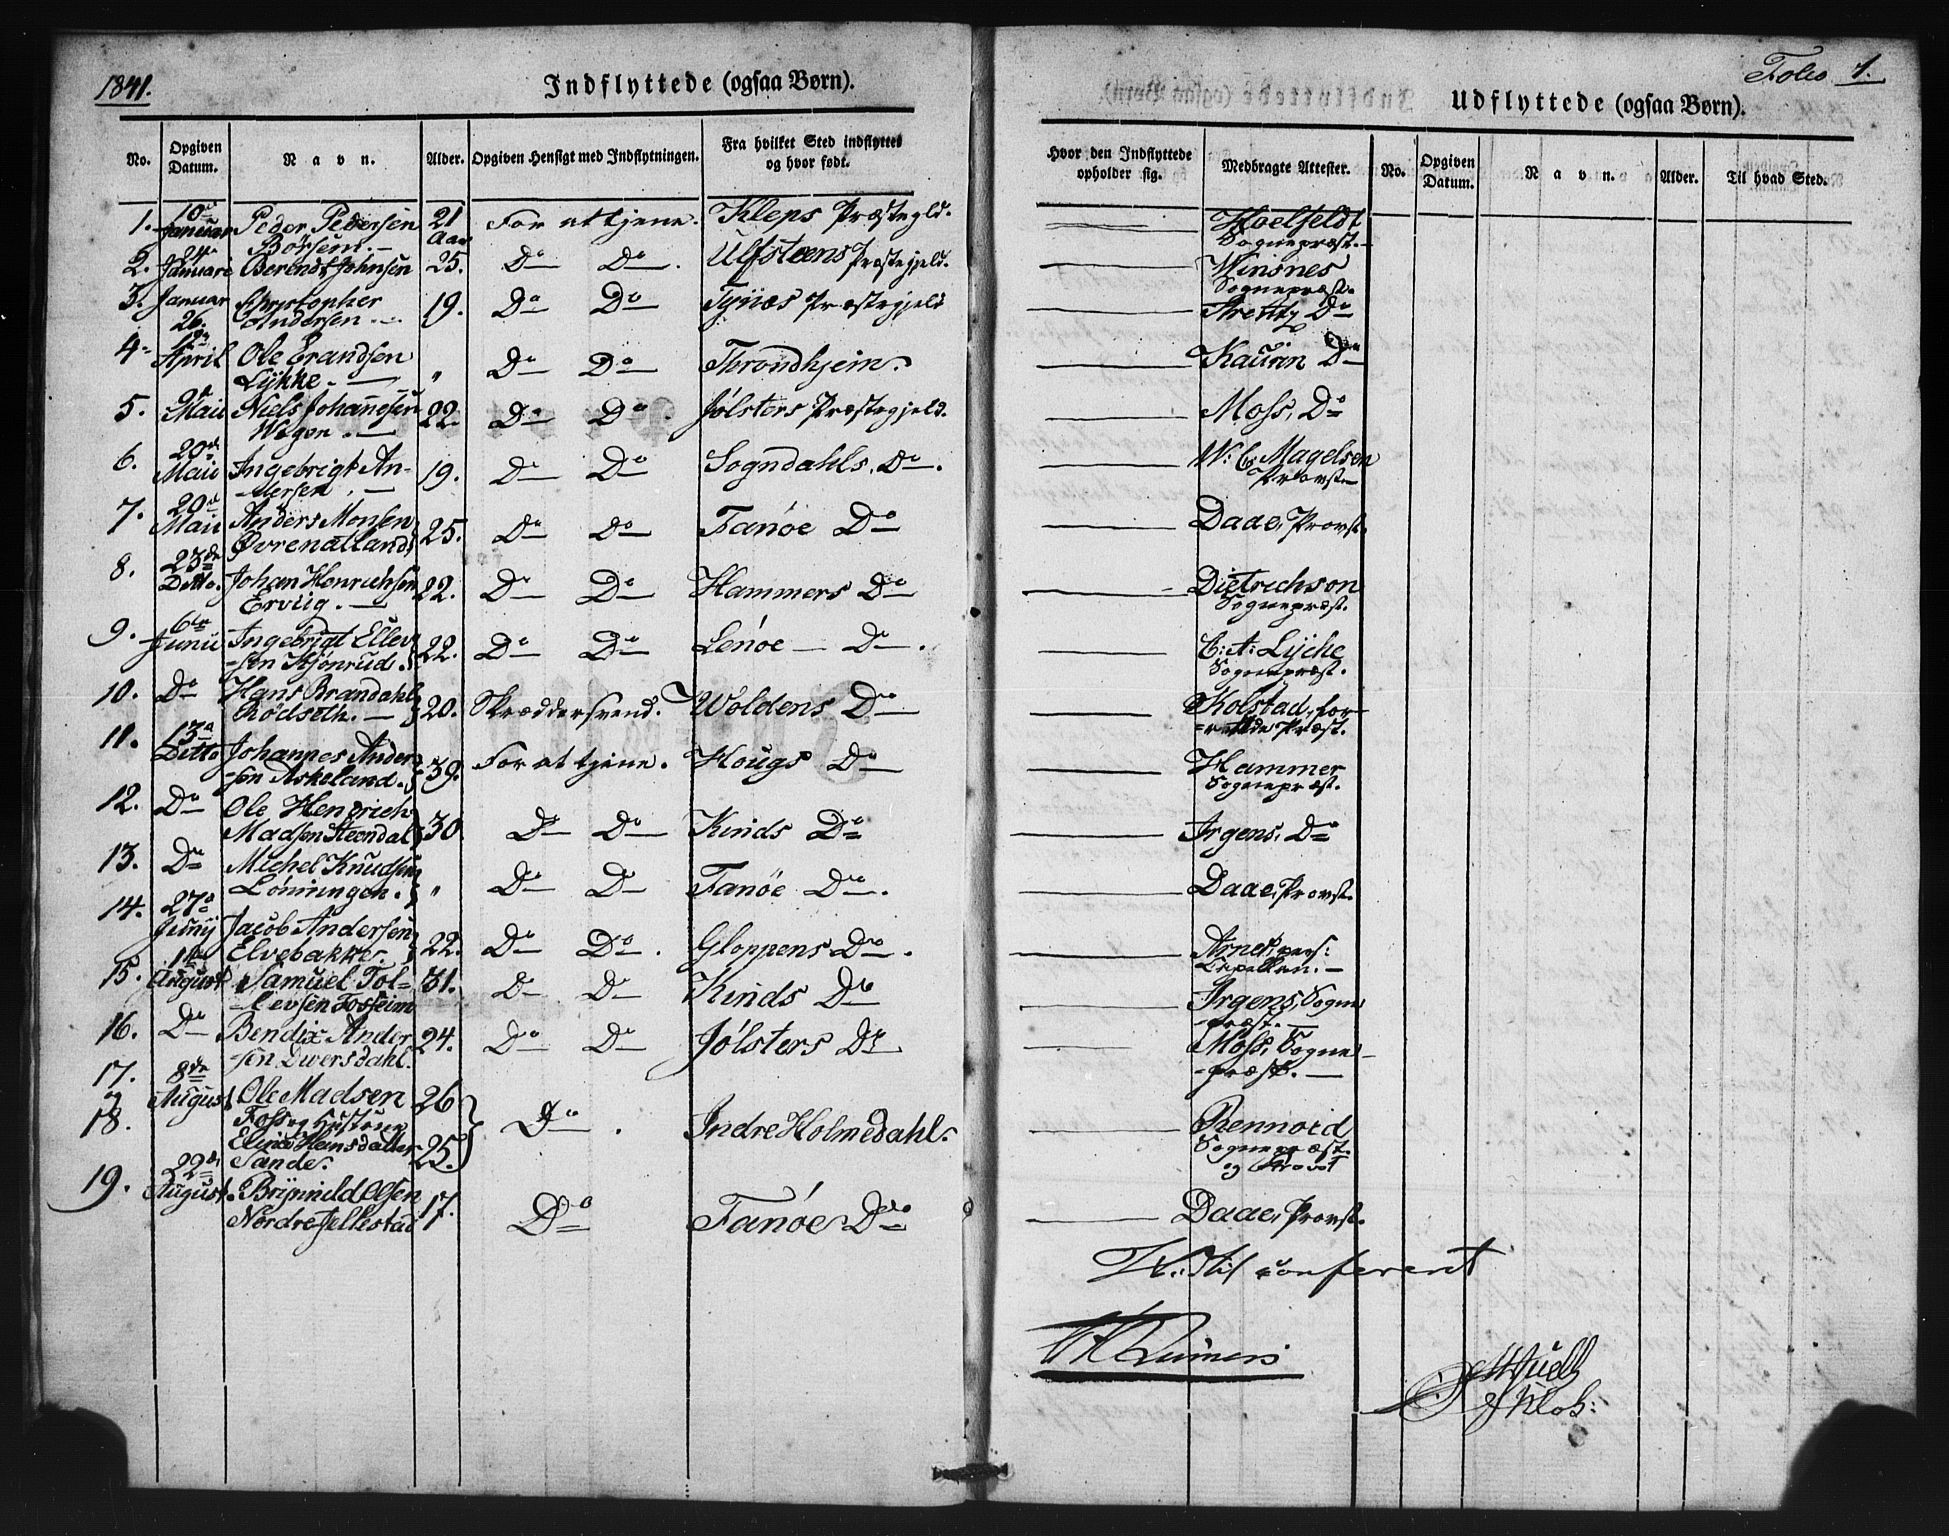 1841.
Indflyttede (ogsaa Børn).
No.
Opgiven Datum.
Navn.
Alder.
Opgiven Hensigt med Indflytningen.
Fra hvilket Sted indflyttet og hvor født.
1. 10de Januar Peder Pedersen 21 Aar For at tjene. Kleps Præstegld.
Börsem.
2. 24de Januari Berendt Johnsen 25. Do Do. Ulfsteens Præstegjeld.
3. Januar 26. Christopher Andersen 19. Do Do Tysnæs Præstegjeld
4. April Ole Erandsen Lykke. " Do Do Throndhjem.
5. Maii Niels Johannesen 22. Do Do. Jølsters Præstegjeld.
6. 20de Maii Ingebrigt Andersen 19. Do Do Sogndahls. Do.
7. 20de Maii Anders Monsen Øvrenatland 25. Do Do Fanøe Do
8. 23de Ditto. Johan Henrichsen Erviig. 22. Do Do Hammers Do
9. 6te Junii Ingebrigt Ellevsen 22. Do Do Lenøe Do.
10. Do Hans Brandahl Rödseth. 20. Skræddersvend. Woldens Do
11. 13de Ditto Johannes Andersen Askeland. 39. For at tjene. Hougs Do
12. Do Ole Henrich Madsen Steendal 30. Do Do Kinds Do
13. Do Michel Knudsen Lönningen. " Do Do Fanøe Do.
14. 27de Junij Jacob Andersen Elvebakke. 22. Do Do. Gloppens Do.
15. 1te August Samuel Tollevsen Fosseim 31. Do Do Kinds Do
16. Do Bendix Andersen Dwersdahl. 24. Do Do Jølsters Do
17. og 18. 8de August Ole Madsen 26 Foss og Hustroe Hansdatter Sande. 25. Do. Indre Holmedahl.
19. 22de August. Brynnild Olsen Nordre Jellestad 17. Do Fanøe Do
Folio 1.
Udflyttede (ogsaa Børn).
Hvor den Indflyttede opholder sig.
Medbragte Attester.
No.
Opgiven Datum.
Navn.
Alder.
Til hvad Sted.
Hoelfeldt
Sognepræst.
Winsnes
Sognepræst.
Do
Kaurin Do
Moss, Do
W: C: Magelsen
Provst
Daae, Provst.
Dietrichson
Sognepræst.
C: A: Lyche
Sognepræst.
Kolstad, for-
-rettde Præst.
Hammer
Sognepræst.
Irgens, Do
Daae, Provst.
Arnet, pers:
Capellan.
Irgens, Sogne-
-præst.
Moss, Sogne-
-præst.
Rennord
Sognepræst.
og Provst
Daae, Provst.
conferent